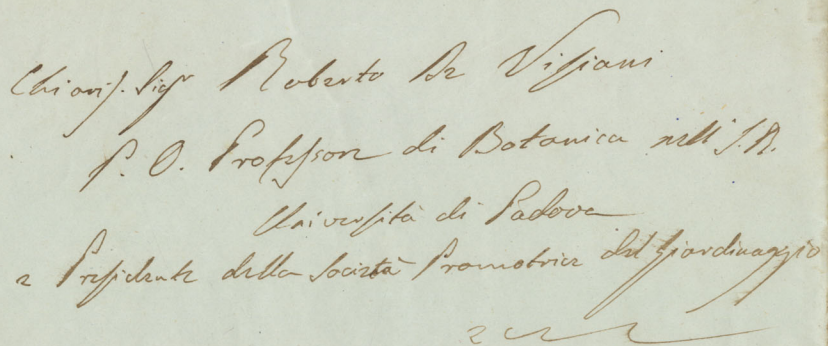 Chiaris. Sigr Roberto De Visiani
P. O. Professore di Botanica nell' I. R.
Università di Padova
e Presidente della Società Promotrice del Giardinaggio